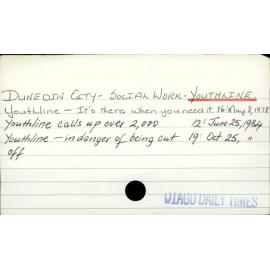 DUNEDIN CITY - SOCIAL WORK - YOUTHLINE.
Youthline - It's there when you need it. 16: May 8, 1978
Youthline calls up over 2,000 12: June 25, 1984
Youthline - in danger of being cut 19: Oct. 25, "
off
OTAGO DAILY TIMES